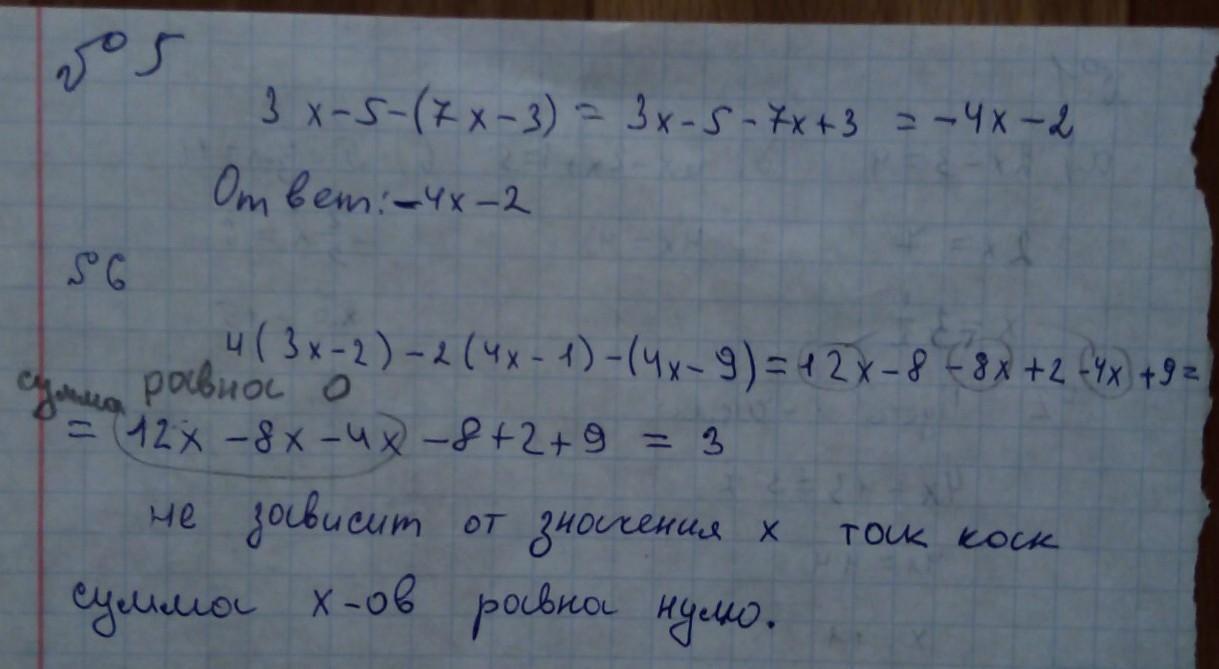 № 5
3x-5-(7x-3) = 3x-5-7x+3 = -4x-2
Ответ: -4x-2
№6
4(3x-2)-2(4x-1)-(4x-9)=12x-8-8x+2-4x+9=
сумма равна 0
= 12x -8x -4x -8+2+9 = 3
не зависит от значения x так как
сумма x-ов равна нулю.